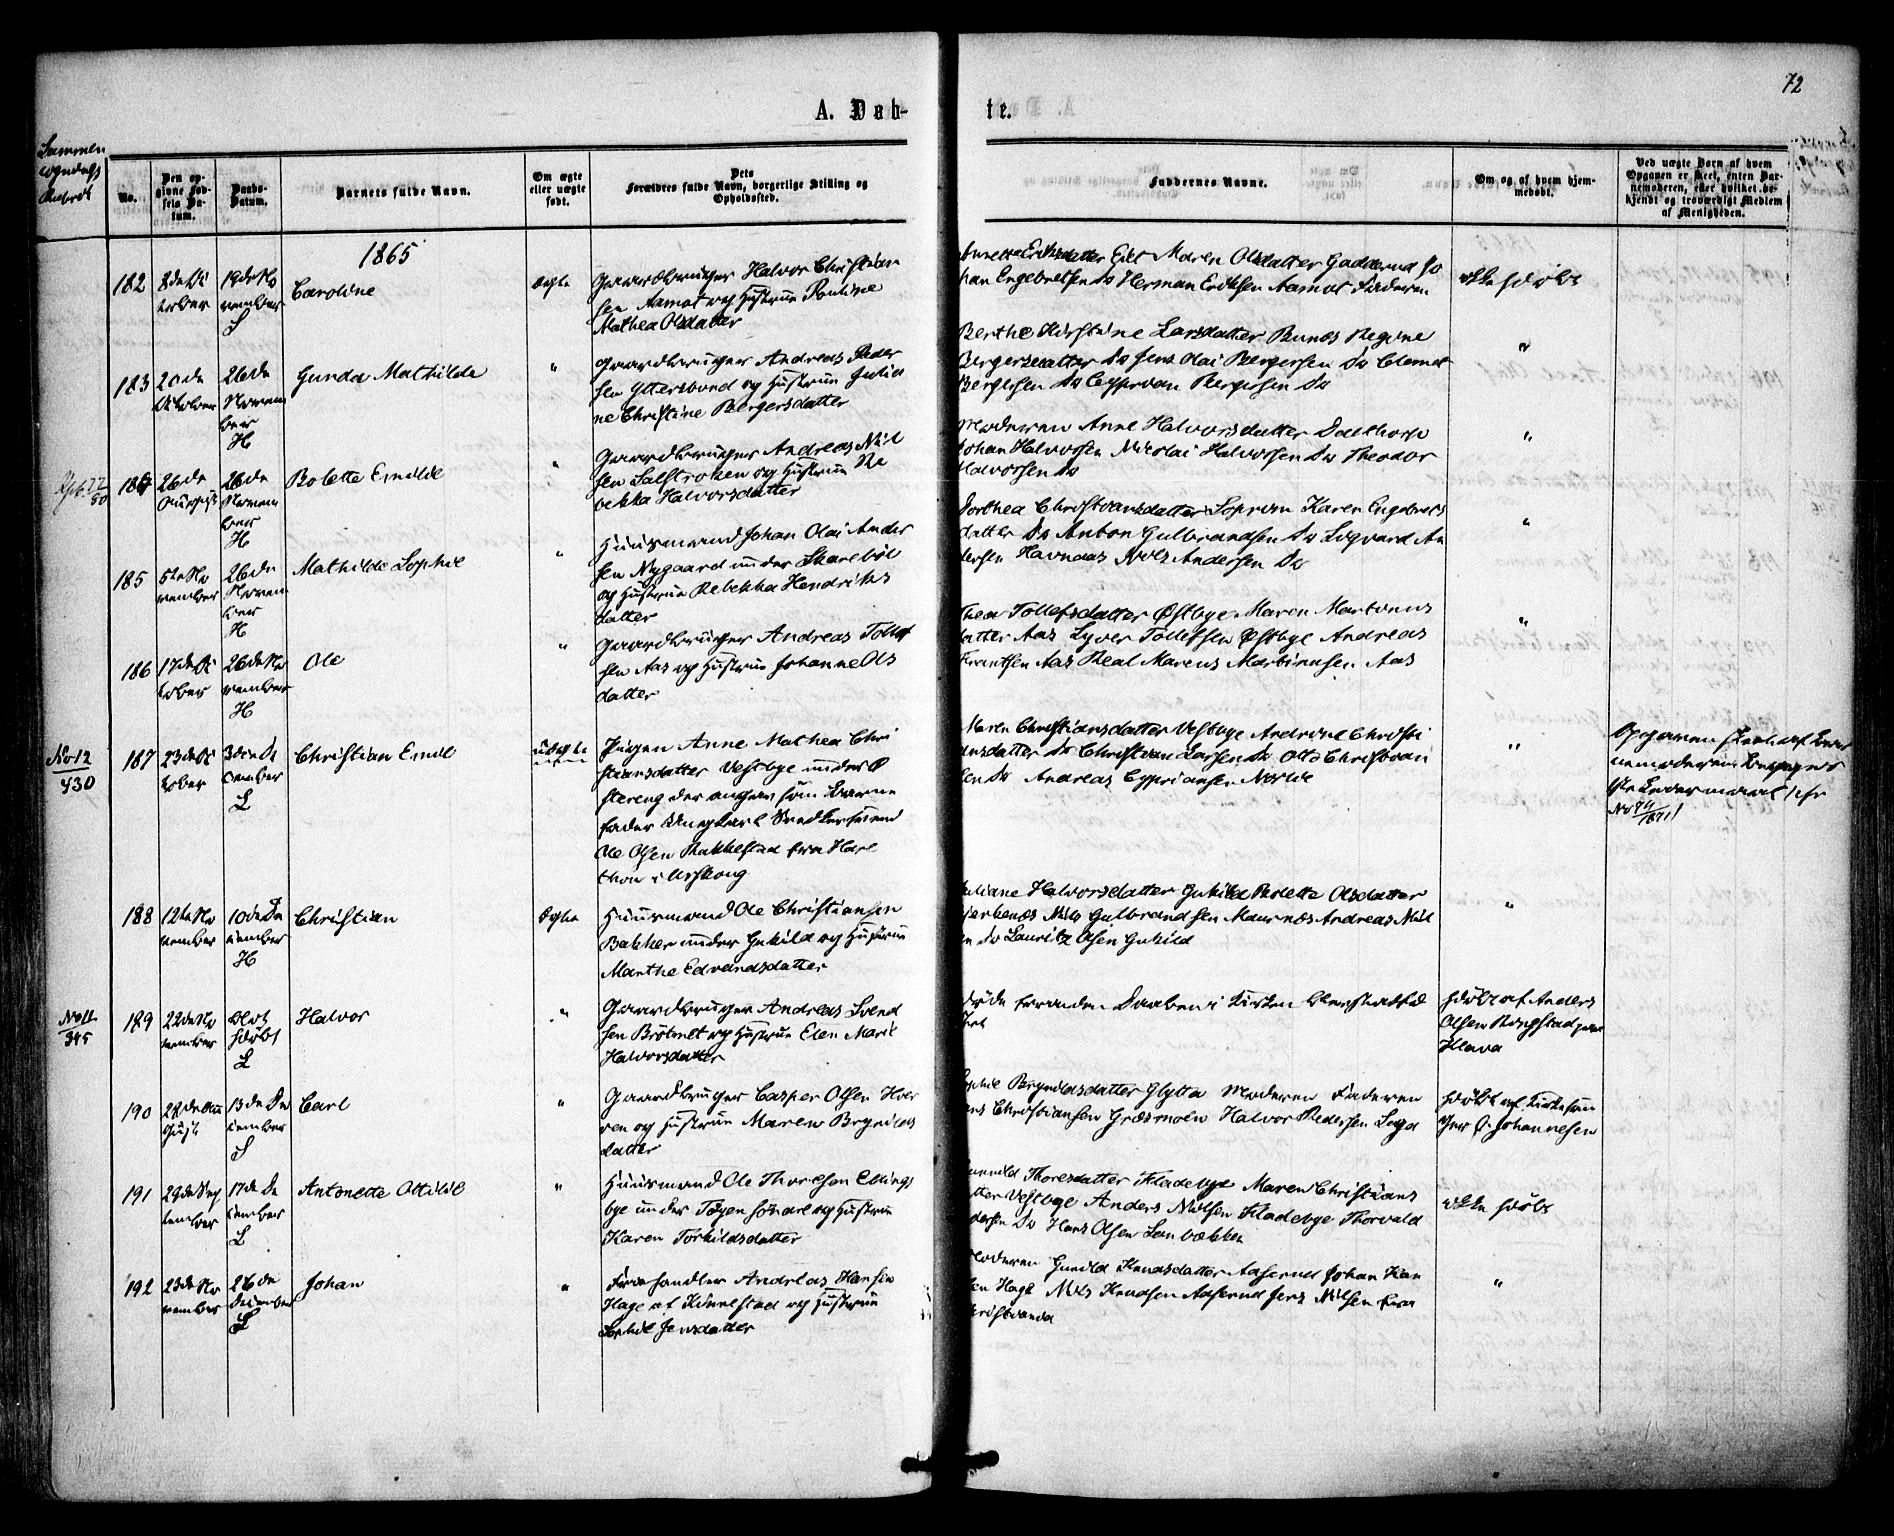 72
A. Døb-
te.
Sammen
No.
Den op-
givne Fød-
sels Da-
tum.
Daabs-
Datum.
Barnets fulde Navn.
Om ægte
eller uægte
født.
Dets
Forældres fulde Navn, borgerlige Stilling og
Opholdssted.
Faddernes Navne.
Om og af hvem hjem-
medøbt.
Ved uægte Børn af hvem
Opgaven er skeet, enten Bar-
nemoderen, eller hvilket be-
kjendt og troværdigt Medlem
af Menigheden.
1865
182
8de Oc
tober
19de No
vember
Caroline
Ægte
Gaardbruger Halvor Christian
sen Aamot og Hustrue Pauline
Mathea Olsdatter
Eriksdatter Maren Olsdatter Gadderud Jo
han Engebretsen Ds Herman Eriksen Aamot Faderen
ikke hjdøbt
183
20de
October
26de
Novem
ber
H
Gunda Mathilde
"
Gaardbruger Andreas Peder
sen Yttersbond og Hustrue Julia
ne Christine Bergersdatter
Berthe Kirstine Larsdatter Bunes Regine
Bergersdatter Ds Jens Olai Bergersen Ds Clemet
Bergersen Ds Cyprian Bergersen Ds
"
184
26de
August
26de
Novem
ber
H
Bolette Emilie
"
Gaardbruger Andreas Niel
sen Salstroken og Hustrue Re
bekka Halvorsdatter
Moderen Anne Halvorsdatter Dalthorp
Johan Halvorsen Nicolai Halvorsen Ds Theodor
Halvorsen Ds
"
185
5te No
vember
26de
Novem
ber
H
Mathilde Sophie
"
Huusmand Johan Olai Ander
sen Nygaard under Skarebøl
og Hustrue Rebekka Hendriks
datter
Dorthea Christiansdatter Sopran Karen Engebrets
datter Ds Anton Gulbrandsen Ds Sigvard An
dersen Havnaas Niels Andersen Ds
"
186
17de Oc
tober
26de No
vember
H
Ole
"
Gaardbruger Andreas Tollef
sen Aas og Hustrue Johanne Ols
datter
Thea Tollefsdatter Østbye Maren Martinius
datter Aas Syver Tollefsen Østbye Andreas
Frantsen Aas Real Marcus Martinusen Aas
"
No 12
430
187
23de Oc
tober
3die De
cember
L
Christian Emil
uægte
Pigen Anne Mathea Chri
stiansdatter Vestbye under Ø
stereng der angav som Barne
fader Ungkarl Snedkersvend
Ole Olsen Rakkestad fra Hare
thon i Urskoug
Maren Christiansdatter Vestbye Andrine Christi
ansdatter Ds Christian Larsen Ds Otto Christian
sen Ds Andreas Cypriansen Narlie
"
Opgaven skeet af Bar
nemoderen
No 74/1871
188
12te No
vember
10de De
cember
H
Christian
Ægte
Huusmand Ole Christiansen
Bakker under Gukild og Hustrue
Marthe Edvardsdatter
Juliane Halvorsdatter Gukild Bolette Olsdatter
Bjerkenæs Niels Gulbrandsen Maurnæs Andreas Niel
sen Ds Lauritz Olsen Gukild
"
No 11
345
189
22de No
vember
blot
hjdøbt
L
Halvor
"
Gaardbruger Andreas Svend
sen Brøtnet og Hustrue Elen Marie
Halvorsdatter
Døde førend Daaben i Kirken blev stadfæ
stet
hjdøbt af Anders
Olsen Ringstad
190
22de Au
gust
13de De
cember
S
Carl
"
Gaardbruger Casper Olsen Hver
ven og Hustrue Maren Brynilds
datter
Sophie Brynildsdatter Glytta Moderen Faderen
Christiansen Græsmoen Halvor Pedersen
hjdøbt af Kirkesan
ger O. Johannesen
191
29de Sep
tember
17de De
cember
L
Antonette Ottilie
"
Huusmand Ole Thoresen Ellings
bye under Tøyen søndre og Hustrue
Karen Torkildsdatter
Gunild Thoresdatter Fladebye Maren Christians
datter Vestbye Anders Nielsen Fladebye Thorvald
Ds Hans Olsen Lanbækken
ikke hjdøbt
192
23de No
vember
26de
December
L
Johan
"
Andreas Hansen
Hage af Kinnestad og Hustrue
Sophie Jensdatter
Moderen Gunild Knudsdatter Aaserud Johan Han
sen Hage Niels Knudsen Aaserud Jens Nilsen fra
Christiania
"